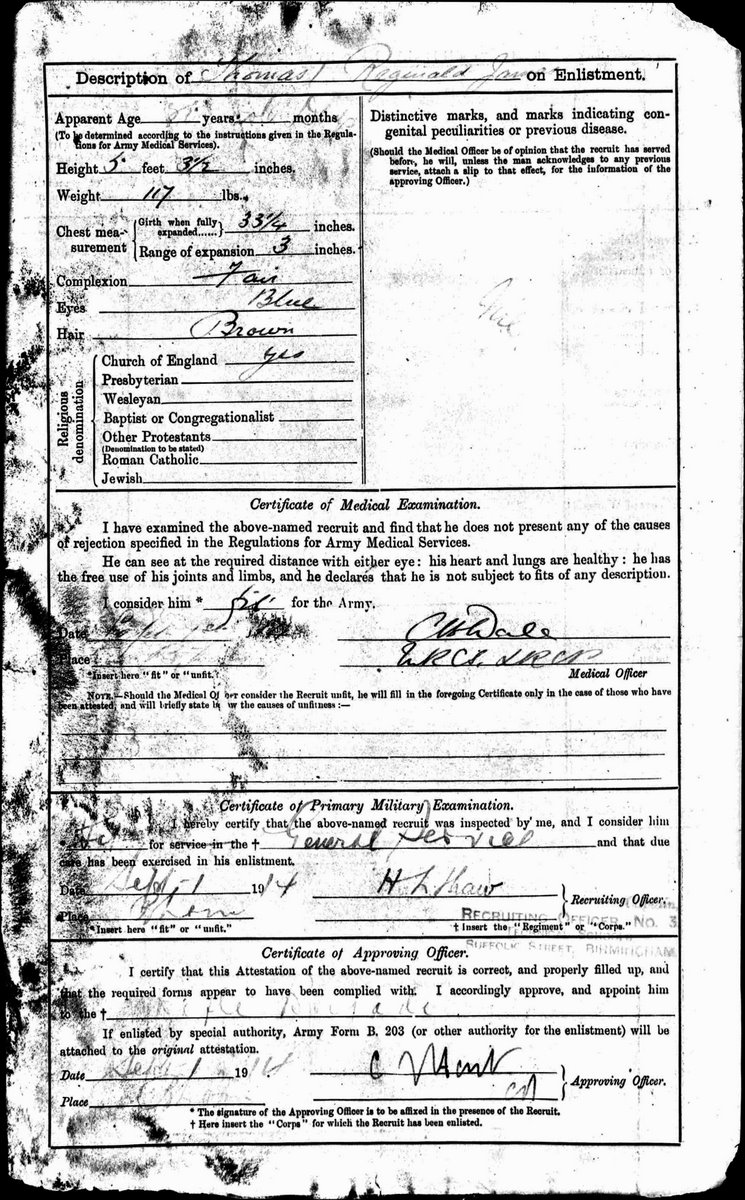 Description of Thomas Reginald James on Enlistment.
Apparent Age years months
(To be determined according to the instructions given in the Regula-
tions for Army Medical Services).
Height 5 feet 3½ inches.
Weight 117 lbs.
Chest mea-
surement
Girth when fully
expanded...... 33¼ inches.
Range of expansion 3 inches.
Complexion Fair
Eyes Blue
Hair Brown
Religious
denomination
Church of England yes
Presbyterian
Wesleyan
Baptist or Congregationalist
Other Protestants
(Denomination to be stated)
Roman Catholic
Jewish
Distinctive marks, and marks indicating con-
genital peculiarities or previous disease.
(Should the Medical Officer be of opinion that the recruit has served
before, he will, unless the man acknowledges to any previous
service, attach a slip to that effect, for the information of the
approving Officer.)
Certificate of Medical Examination.
I have examined the above-named recruit and find that he does not present any of the causes
of rejection specified in the Regulations for Army Medical Services.
He can see at the required distance with either eye: his heart and lungs are healthy: he has
the free use of his joints and limbs, and he declares that he is not subject to fits of any description.
I consider him * fit for the Army.
Date
Place
Medical Officer
*Insert here "fit" or "unfit."
NOTE.—Should the Medical Officer consider the Recruit unfit, he will fill in the foregoing Certificate only in the case of those who have
been attested, and will briefly state below the causes of unfitness :—
Certificate of Primary Military Examination.
I hereby certify that the above-named recruit was inspected by me, and I consider him
for service in the † General Service and that due
care has been exercised in his enlistment.
Date Sept 1 1914 H L Shaw
Recruiting Officer.
Place
RECRUITING OFFICER NO. 3
*Insert here "fit" or "unfit." † Insert the "Regiment" or "Corps."
SUFFOLK STREET, BIRMINGHAM
Certificate of Approving Officer.
I certify that this Attestation of the above-named recruit is correct, and properly filled up, and
that the required forms appear to have been complied with. I accordingly approve, and appoint him
to the †
If enlisted by special authority, Army Form B. 203 (or other authority for the enlistment) will be
attached to the original attestation.
Date Sept 1 1914
Approving Officer.
Place
* The signature of the Approving Officer is to be affixed in the presence of the Recruit.
† Here insert the "Corps" for which the Recruit has been enlisted.